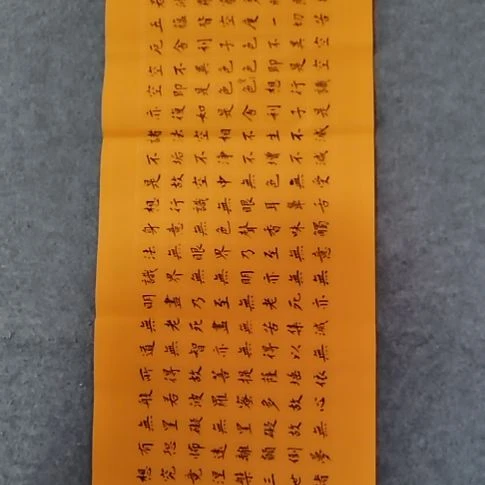 五蘊皆空度一切苦
厄舍利子色不異空
空不異色色即是空
空即是色受想行識
亦復如是舍利子是
諸法空相不生不滅
不垢不淨不增不減
是故空中無色無受
想行識無眼耳鼻舌
身意無色聲香味觸
法無眼界乃至無意
識界無無明亦無無
明盡乃至無老死亦
無老死盡無苦集滅
道無智亦無得以無
所得故菩提薩埵依
般若波羅蜜多故心
無罣礙無罣礙故無
有恐怖遠離顛倒夢
想究竟涅槃三世諸